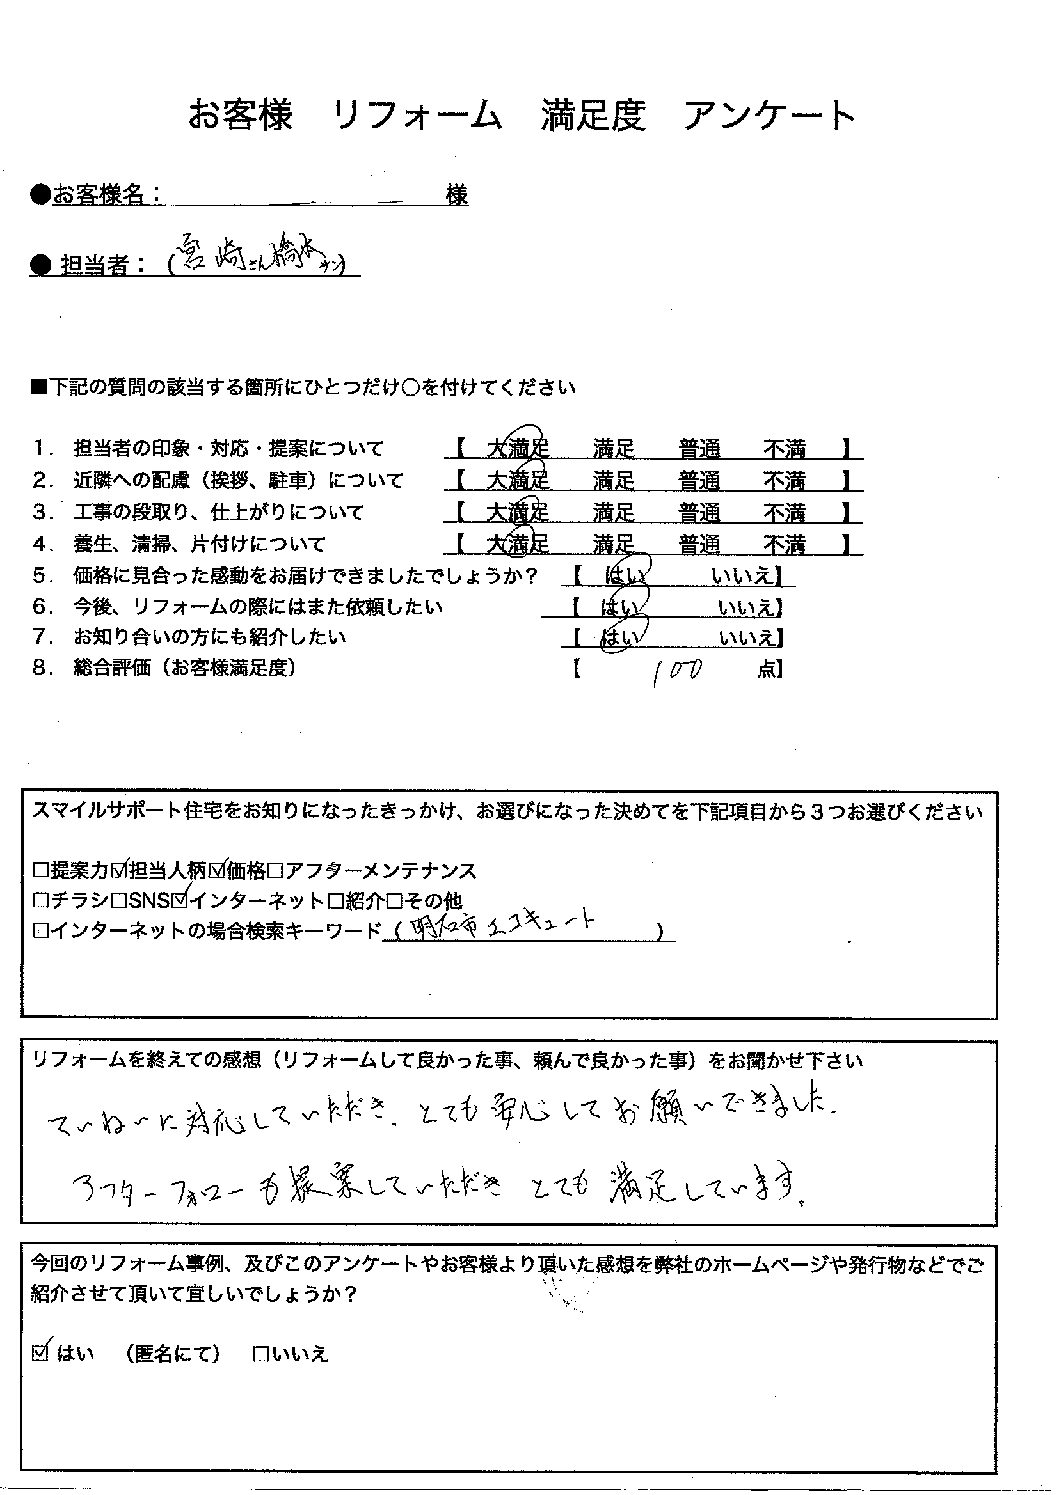 お客様　リフォーム　満足度　アンケート
●お客様名：　　　　　　　様
●担当者：（宮崎さん橋本サン）
■下記の質問の該当する箇所にひとつだけ○を付けてください
1．担当者の印象・対応・提案について　【　大満足　満足　普通　不満　】
2．近隣への配慮（挨拶、駐車）について　【　大満足　満足　普通　不満　】
3．工事の段取り、仕上がりについて　【　大満足　満足　普通　不満　】
4．養生、清掃、片付けについて　【　大満足　満足　普通　不満　】
5．価格に見合った感動をお届けできましたでしょうか？　【　はい　いいえ】
6．今後、リフォームの際にはまた依頼したい　【　はい　いいえ】
7．お知り合いの方にも紹介したい　【　はい　いいえ】
8．総合評価（お客様満足度）　【　100　点】
スマイルサポート住宅をお知りになったきっかけ、お選びになった決めてを下記項目から3つお選びください
□提案力☑担当人柄☑価格□アフターメンテナンス
□チラシ□SNS☑インターネット□紹介□その他
□インターネットの場合検索キーワード（明石市エコキュート　）
リフォームを終えての感想（リフォームして良かった事、頼んで良かった事）をお聞かせ下さい
ていねいに対応していただき、とても安心してお願いできました。
アフターフォローも提案していただき とても満足しています。
今回のリフォーム事例、及びこのアンケートやお客様より頂いた感想を弊社のホームページや発行物などでご
紹介させて頂いて宜しいでしょうか？
☑はい　（匿名にて）　□いいえ